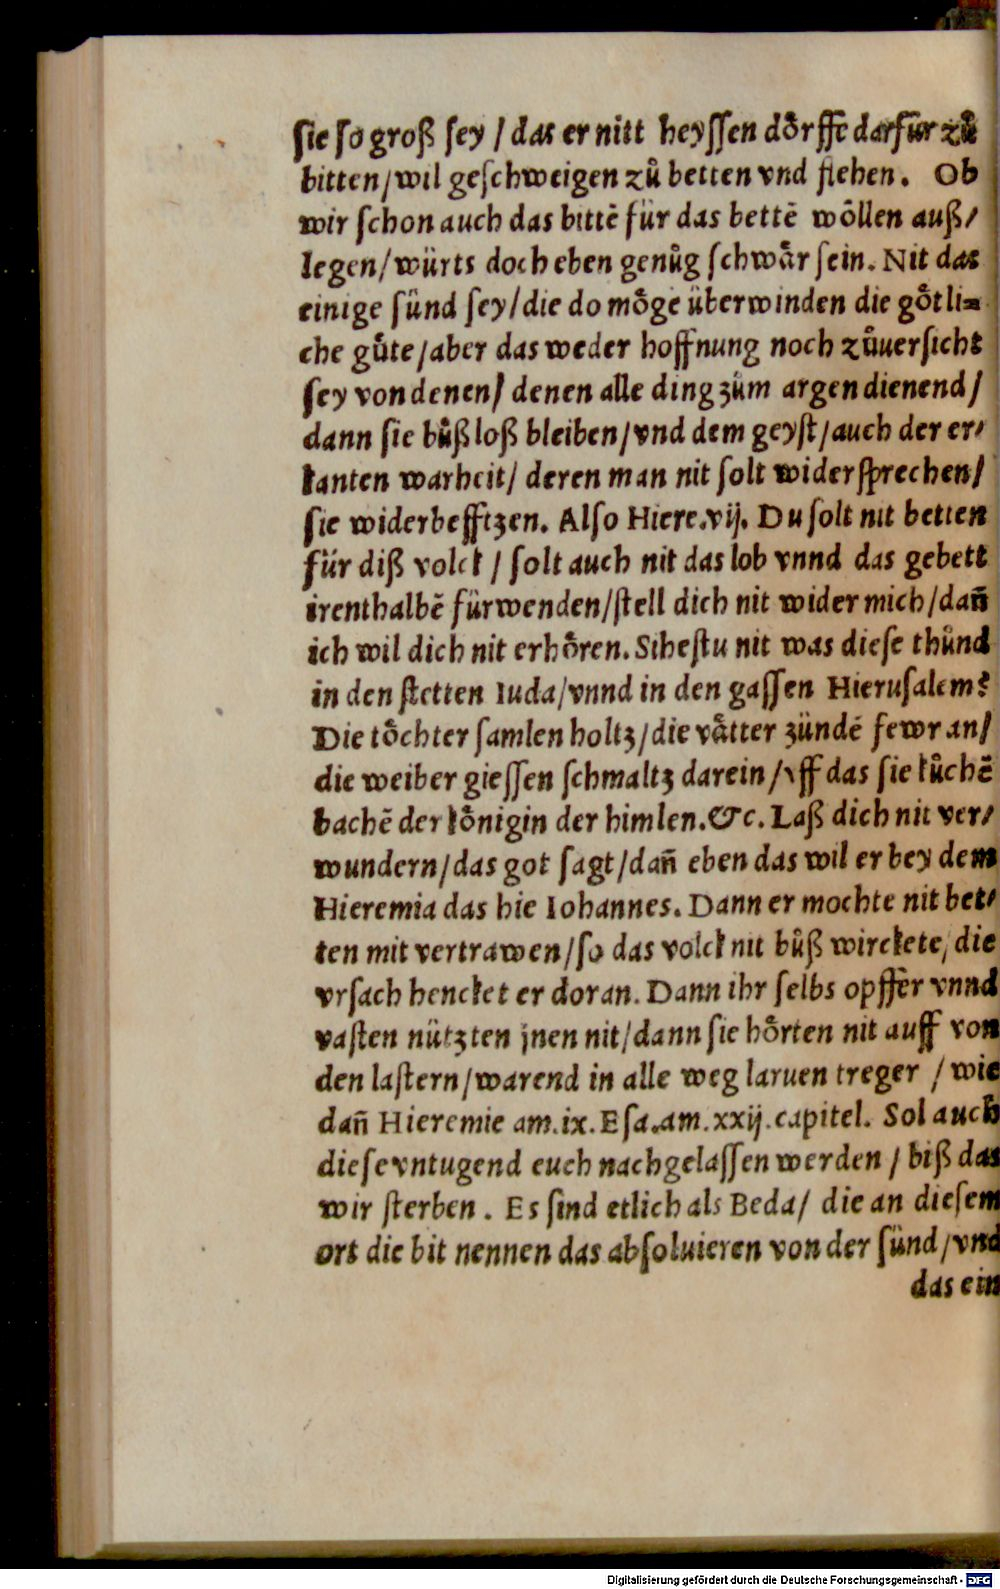 sie so groß sey / das er nitt heyssen doͤrffe darfür zů
bitten/wil geschweigen zů betten vnd flehen. Ob
wir schon auch das bittē für das bettē woͤllen auß/
legen/würts doch eben genůg schwaͤr sein. Nit das
einige sünd sey/die do moͤge überwinden die goͤtli=
che guͤte/aber das weder hoffnung noch zůuersicht
sey von denen/ denen alle ding zům argen dienend/
dann sie bůßloß bleiben/vnd dem geyst/auch der er/
kanten warheit/ deren man nit solt widersprechen/
sie widerbefftzen. Also Hiere.vij. Du solt nit betten
für diß volck / solt auch nit das lob vnnd das gebett
irenthalbē fürwenden/stell dich nit wider mich/dañ
ich wil dich nit erhoͤren. Sihestu nit was diese thůnd
in den stetten Iuda/vnnd in den gassen Hierusalem?
Die toͤchter samlen holtz/die vaͤtter zündē fewr an/
die weiber giessen schmaltz darein/vff das sie kůchē
bachē der koͤnigin der himlen.&c. Laß dich nit ver/
wundern/das got sagt/dañ eben das wil er bey dem
Hieremia das hie Iohannes. Dann er mochte nit bet/
ten mit vertrawen/so das volck nit bůß wirckete, die
vrsach hencket er doran. Dann ihr selbs opffer vnnd
vasten nützten jnen nit/dann sie hoͤrten nit auff von
den lastern/warend in alle weg laruen treger / wie
dañ Hieremie am.ix. Esa.am.xxij.capitel. Sol auch
diese vntugend euch nachgelassen werden / biß das
wir sterben . Es sind etlich als Beda/ die an diesem
ort die bit nennen das absoluieren von der sünd/vnd
das ein
Digitalisierung gefördert durch die Deutsche Forschungsgemeinschaft - DFG